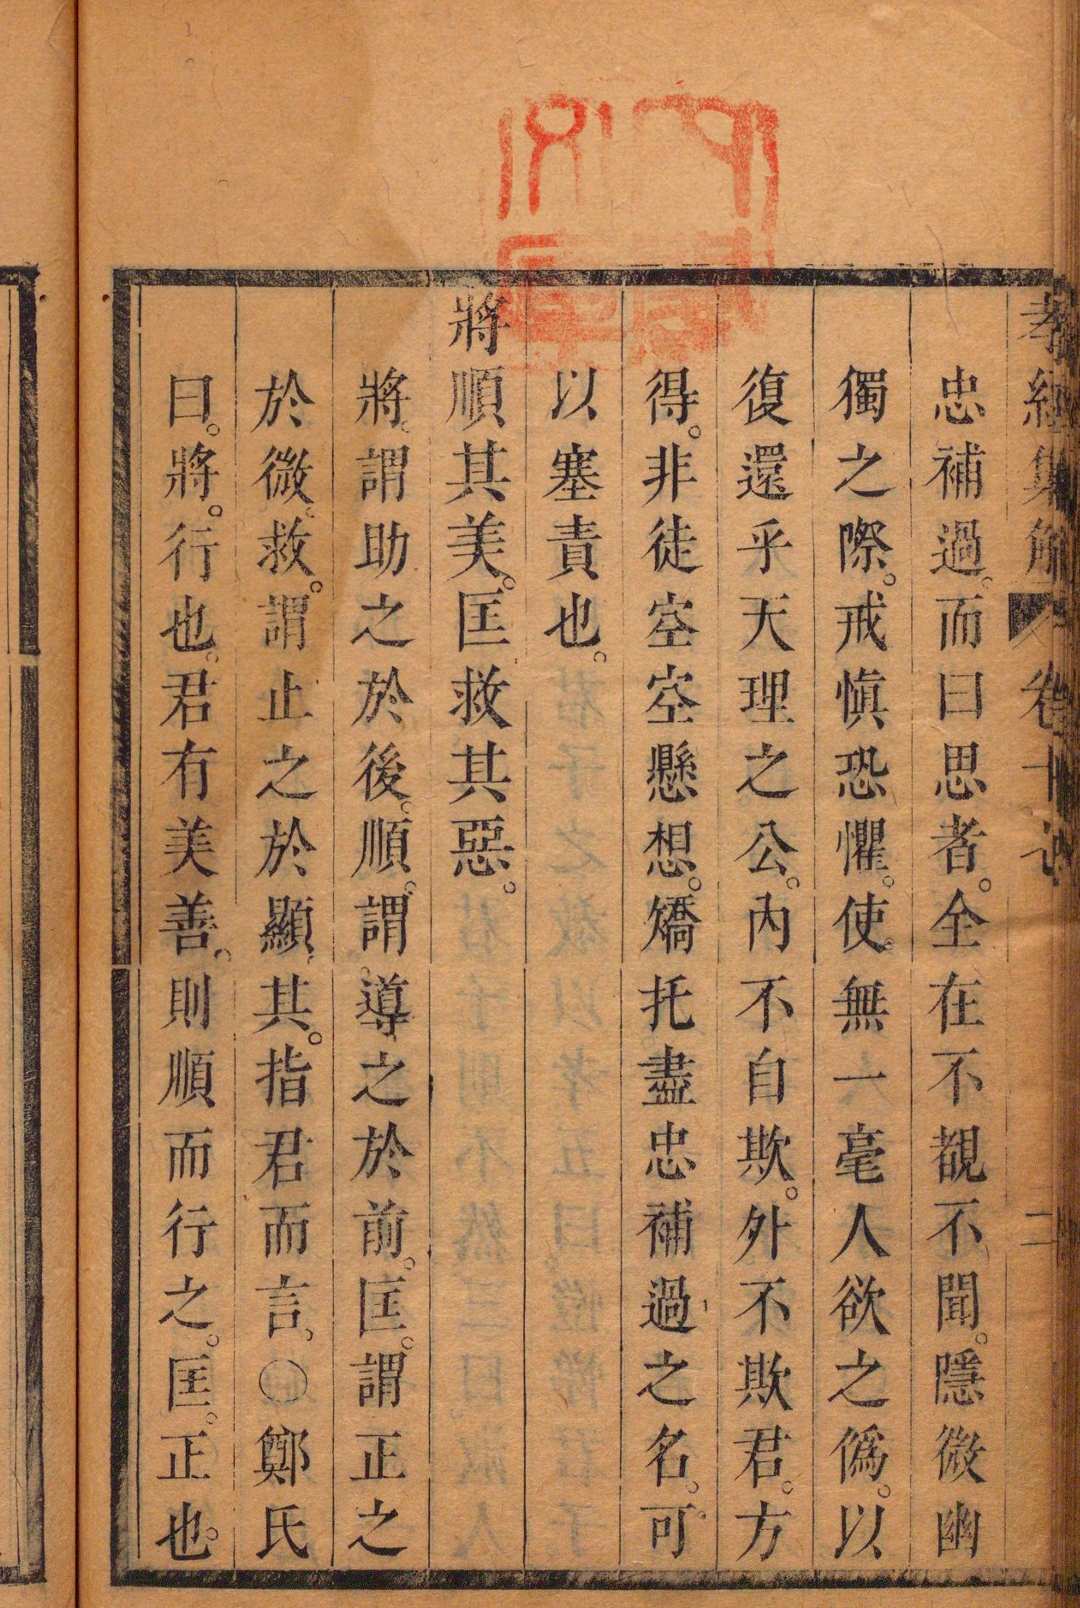 孝經集解 卷十七 二
忠補過。而曰思者。全在不覩不聞。隱微幽
獨之際。戒慎恐懼。使無一毫人欲之僞。以
復還乎天理之公。內不自欺。外不欺君。方
得。非徒空空懸想。矯托盡忠補過之名。可
以塞責也。
將順其美。匡救其惡。
將。謂助之於後。順。謂導之於前。匡。謂正之
於微。救。謂止之於顯。其。指君而言。〇鄭氏
曰。將。行也。君有美善。則順而行之。匡。正也。